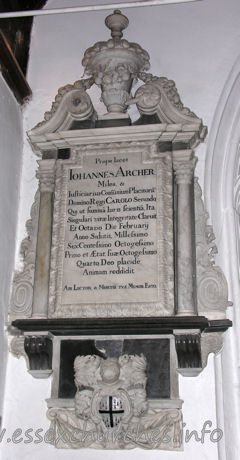 Prope Iacet
IOHANNES ARCHER
Miles &
Iusticiarius Com̃munium Placitorũ
Domino Regi CAROLO Secundo
Qui et summâ Iuris scientiâ, Ita
Singulari vitæ integritate Claruit
Et Octavo Die February
Anno Salutis Millesimo
SexCentesimo Octogesimo
Primo et Ætat. suæ Octogesimo
Quarto Deo placide
Animam reddidit
www.essexchurches.info